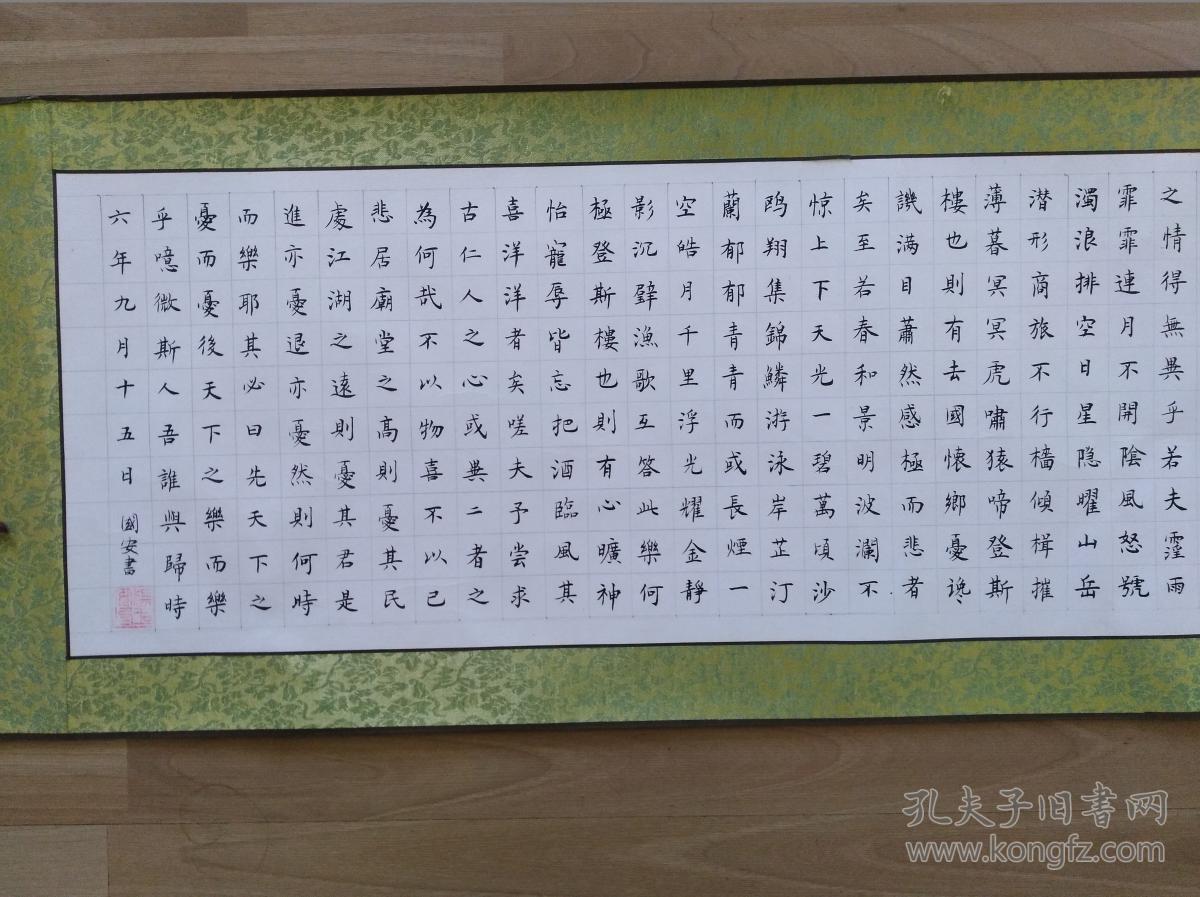 之情得無異乎若夫霪雨
霏霏連月不開陰風怒號
濁浪排空日星隐曜山岳
潜形商旅不行檣傾楫摧
薄暮冥冥虎嘯猿啼登斯
樓也則有去國懷鄉憂谗
譏满目蕭然感極而悲者
矣至若春和景明波瀾不
惊上下天光一碧萬頃沙
鸥翔集錦鱗游泳岸芷汀
蘭郁郁青青而或長煙一
空皓月千里浮光耀金靜
影沉璧漁歌互答此樂何
極登斯樓也則有心曠神
怡寵辱皆忘把酒臨風其
喜洋洋者矣嗟夫予尝求
古仁人之心或異二者之
為何哉不以物喜不以己
悲居廟堂之高則憂其民
處江湖之遠則憂其君是
進亦憂退亦憂然則何時
而樂耶其必曰先天下之
憂而憂後天下之樂而樂
乎噫微斯人吾誰與歸時
六年九月十五日
國安書
孔夫子旧书网
www.kongfz.com